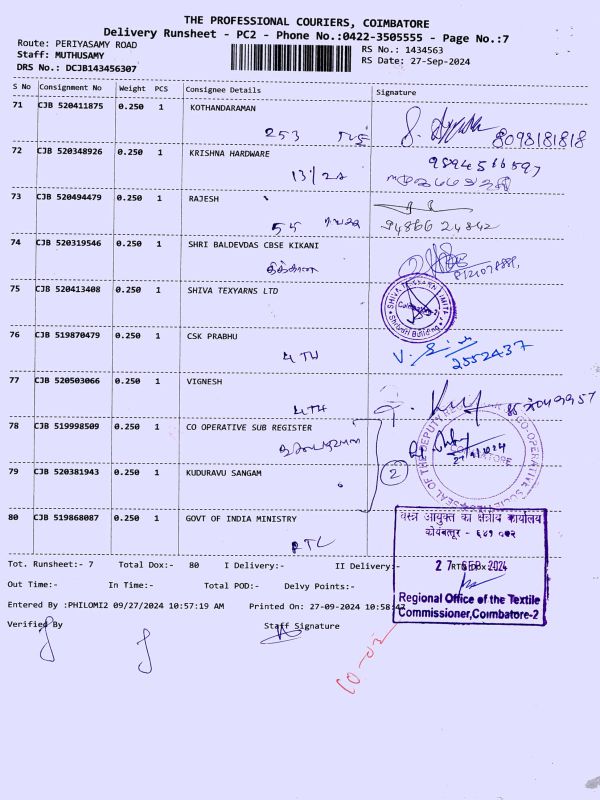 THE PROFESSIONAL COURIERS, COIMBATORE
Delivery Runsheet - PC2 - Phone No.:0422-3505555 - Page No.:7
Route: PERIYASAMY ROAD
RS No.: 1434563
Staff: MUTHUSAMY
RS Date: 27-Sep-2024
DRS No.: DCJB143456307
S No Consignment No Weight PCS Consignee Details Signature
71 CJB 520411875 0.250 1 KOTHANDARAMAN
253
8098181818
72 CJB 520348926 0.250 1 KRISHNA HARDWARE
73 CJB 520494479 0.250 1 RAJESH
55
94866 24842
74 CJB 520319546 0.250 1 SHRI BALDEVDAS CBSE KIKANI
75 CJB 520413408 0.250 1 SHIVA TEXYARNS LTD
SHIVA TEXYARN LIMITED
Shivali Building
76 CJB 519870479 0.250 1 CSK PRABHU
4TH
2552437
77 CJB 520503066 0.250 1 VIGNESH
4TH
78 CJB 519998509 0.250 1 CO OPERATIVE SUB REGISTER
SEAL OF THE DEPUTY
CO-OPERATIVE
COIMBATORE
2
79 CJB 520381943 0.250 1 KUDURAVU SANGAM
80 CJB 519868087 0.250 1 GOVT OF INDIA MINISTRY
RTC
वस्त्र आयुक्त का क्षेत्रीय कार्यालय
कोयंबत्तूर - ६४१ ००२
27 SEP 2024
Regional Office of the Textile
Commissioner,Coimbatore-2
Tot. Runsheet:- 7 Total Dox:- 80 I Delivery:- II Delivery:-
Out Time:- In Time:- Total POD:- Delvy Points:-
Entered By :PHILOMI2 09/27/2024 10:57:19 AM Printed On: 27-09-2024 10:58:47
Verified By Staff Signature